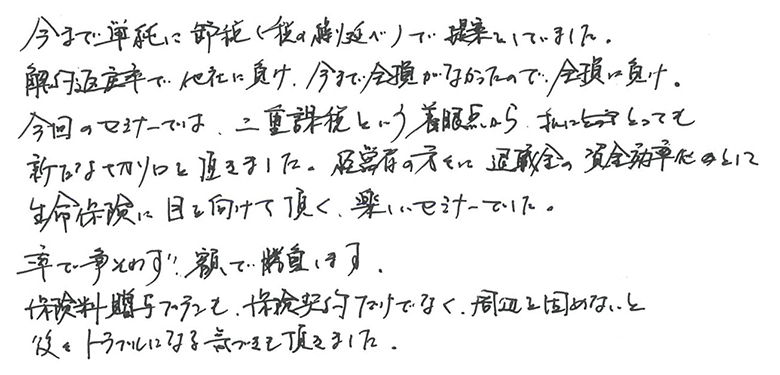 今まで単純に節税(税の繰り延べ)で提案していました。
解約返戻率で他社に負け、今まで全損がなかったので全損に負け。
今回のセミナーでは、二重課税という着眼点から、私にとっても
新たな切り口を頂きました。経営者の方々に退職金の資金効率化として
生命保険に目を向けて頂く、楽しいセミナーでした。
率で争わず!額で勝負します。
保険料贈与プランも、保険契約だけでなく、周辺を固めないと
後々トラブルになる気づきを頂きました。